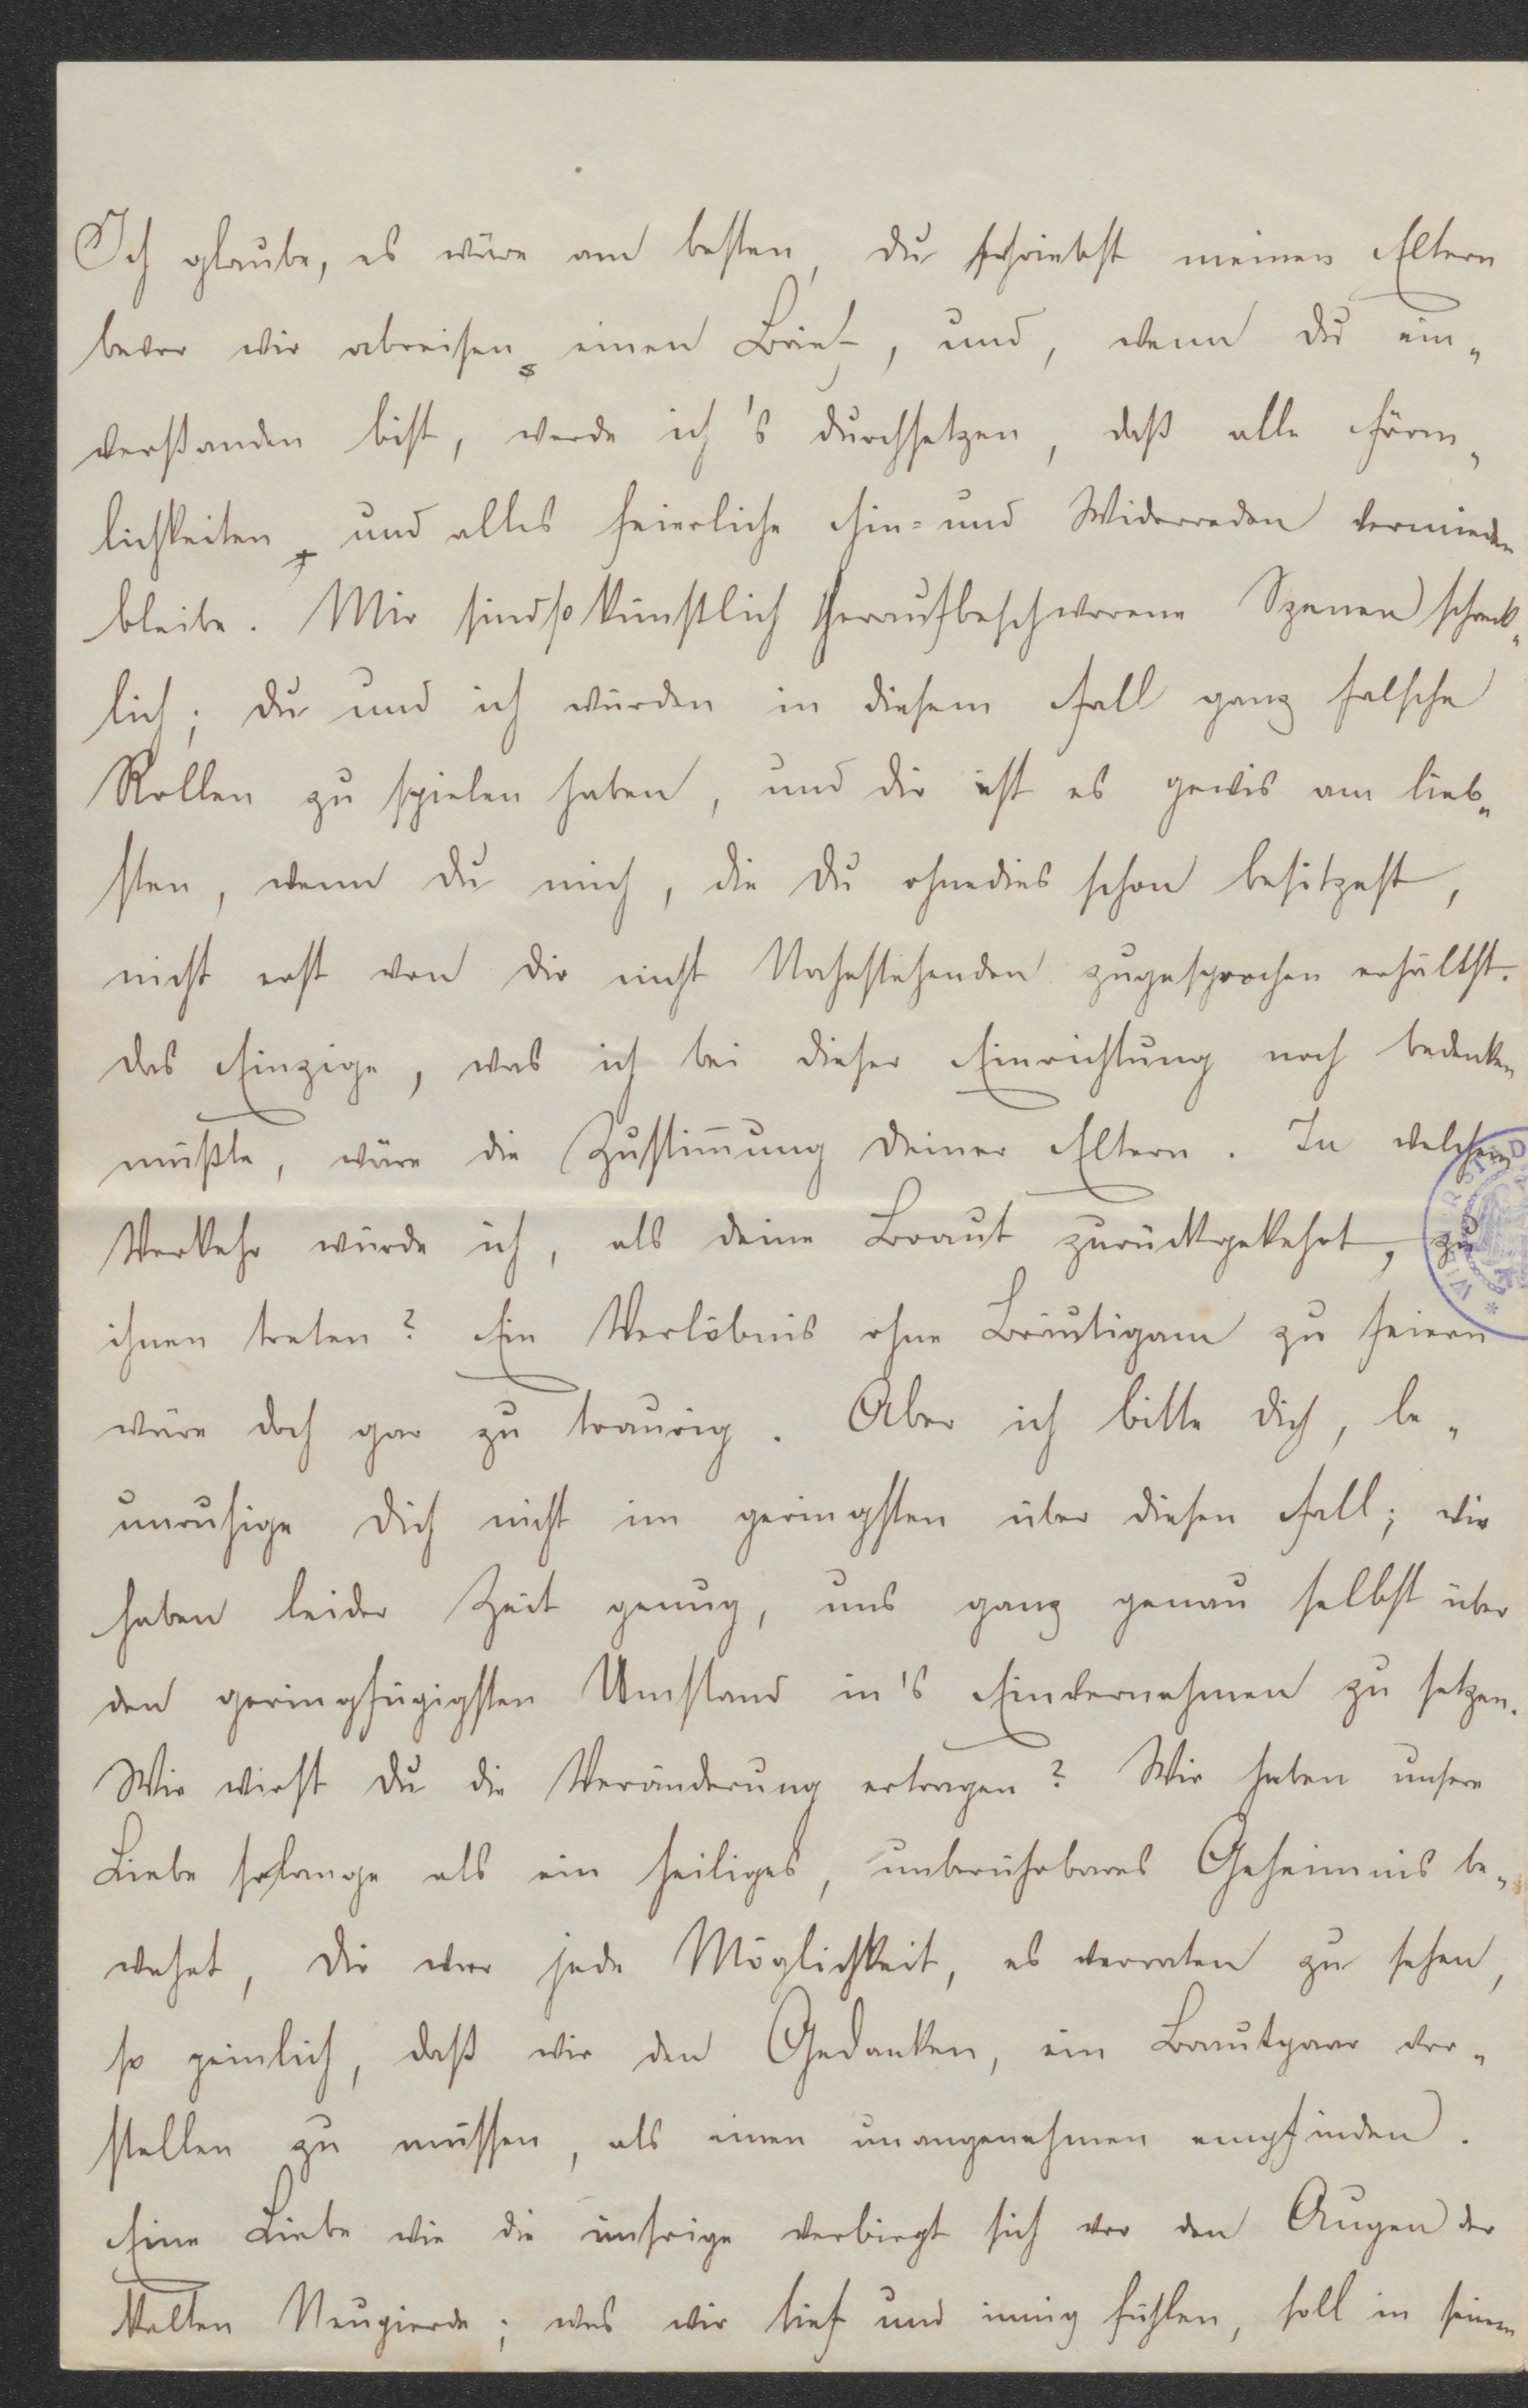 Ich glaube, es wäre am besten, du schriebst meinen Eltern
bevor wir abreisen einen Brief, und, wenn du ein„
verstanden bist, werde ich's durchsetzen, daß alle Förm„
lichkeiten und alles feierliche Hin= und Widerreden vermieden
bleibe. Mir sind so künstlich heraufbeschworene Szenen schreck„
lich; du und ich würden in diesem Fall ganz falsche
Rollen zu spielen haben, und dir ist es gewis am lieb„
sten, wenn du mich, die du ohnedies schon besitzest,
nicht erst von dir nicht Nahestehenden zugesprochen erhältst.
das Einzige, was ich bei dieser Einrichtung noch bedenken
müßte, wäre die Zustim̄ung deiner Eltern. In welchem
Verkehr würde ich, als deine Braut zurückgekehrt, zu
ihnen treten? Ein Verlöbnis ohne Bräutigam zu feiern
wäre doch gar zu traurig. Aber ich bitte dich, be„
unruhige dich nicht im geringsten über diesen Fall; wir
haben leider Zeit genug, uns ganz genau selbst über
den geringfügigsten Umstand in's Einvernehmen zu setzen.
Wie wirst du die Veränderung ertragen? Wir haben unsere
Liebe so lange als ein heiliges, unberührbares Geheimnis be„
wahrt, dir war jede Möglichkeit, es verraten zu sehen,
so peinlich, daß wir den Gedanken, ein Brautpaar vor„
stellen zu müssen, als einen unangenehmen empfinden.
Eine Liebe wie die unsrige verbirgt sich vor den Augen der
kalten Neugierde; was wir tief und innig fühlen, soll in seinen